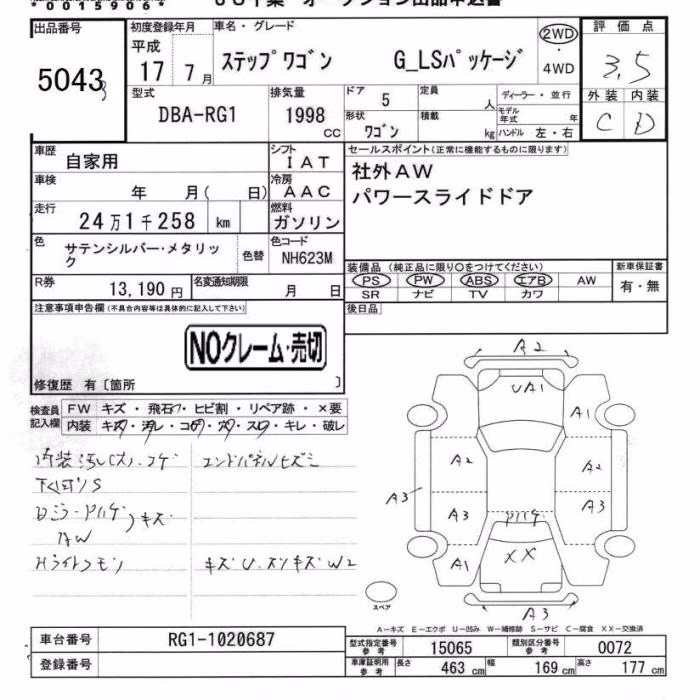 00159064
出品番号
5043
初度登録年月
平成
17 7月
車名・グレード
ステップワゴン G_LSパッケージ
2WD
4WD
評価点
3.5
外装 内装
C D
型式
DBA-RG1
排気量
1998 CC
ドア 5
形状 ワゴン
定員 人
積載 kg
ディーラー・並行
モデル年式 年
ハンドル 左・右
車歴 自家用
シフト IAT
車検 年 月( 日)
冷房 AAC
走行 24万1千258 km
燃料 ガソリン
色 サテンシルバー・メタリック
色替
色コード NH623M
R券 13,190円
名変通知期限 月 日
セールスポイント(正常に機能するものに限ります)
社外AW
パワースライドドア
装備品(純正品に限り○をつけてください)
PS PW ABS エアB AW
SR ナビ TV カワ
新車保証書
有・無
後日品
注意事項申告欄(不具合内容等は具体的に記入して下さい)
NOクレーム・売切
修復歴 有〔箇所 〕
検査員記入欄
FW キズ・飛石・ヒビ割・リペア跡・×要
内装 キズ・汚レ・コゲ・穴・スレ・キレ・破レ
内装汚レ(大)・コゲ
エンドパネルヒズミ
下回リS
キズ
AW
Hライトクモリ
A2
UA1
A1
A2
A2
A3
A3
A3
A1
XX
A3
スペア
A-キズ E-エクボ U-凹み W-補修跡 S-サビ C-腐食 XX-交換済
車台番号 RG1-1020687
登録番号
型式指定番号 参考 15065
類別区分番号 参考 0072
車庫証明用 参考 長さ 463 cm 幅 169 cm 高さ 177 cm